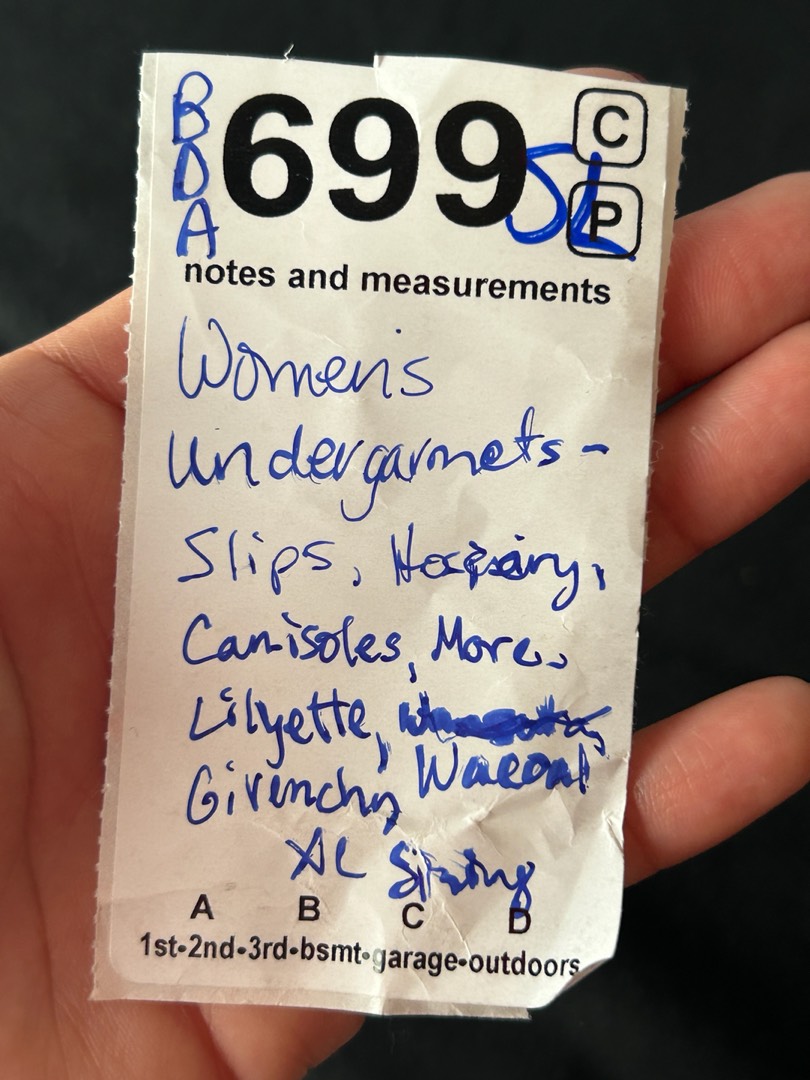 B 699 C
D SL P
A
notes and measurements
Women's
Undergarmets-
Slips,
Camisoles, More.
Lilyette,
Givenchy, Wacoal
XL
A B C D
1st•2nd•3rd•bsmt•garage•outdoors